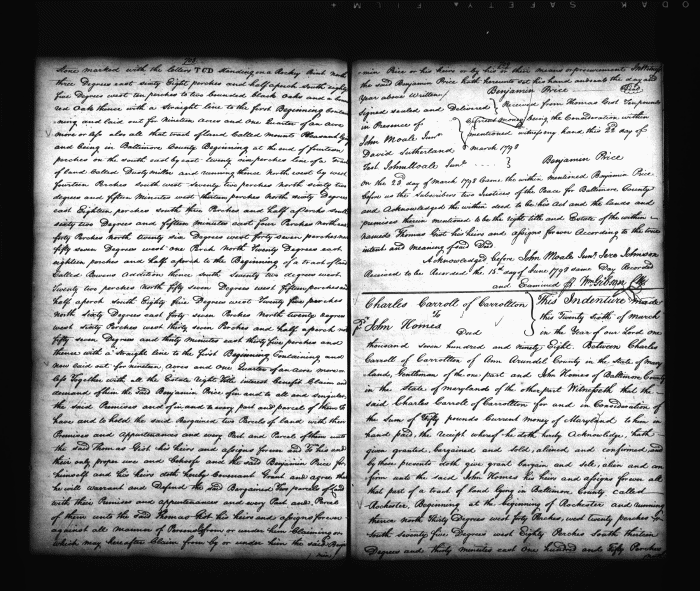 Stone marked with the letters TCD standing on a Rocky Bank north
three Degrees east sixty Eight perches and half a perch south eighty
five Degrees west ten perches to two bounded black Oaks and a bounded
red Oak thence with a straight line to the first Beginning Contain
ing and laid out for nineteen Acres and One Quarter of an Acre
more or less also all that tract of land Called Mounts Pleasant lying
and being in Baltimore County Beginning at the end of fourteen
perches on the south east by east twenty six perches line of a Tract
of land Called Dusty miller and running thence North west by west
fourteen Perches south west seventy two perches north sixty two
degrees and fifteen minutes west thirteen perches south sixty degrees
east Eighteen perches south three Perches and half a perch south
sixty two Degrees and fifteen minutes west four Perches north
forty Perches North twenty six Degrees west forty seven perches north
fifty seven Degrees west one Perch North Twenty Degrees east
eighteen perches and half a perch to the Beginning of a tract of land
Called Bowens addition thence south seventy two degrees west
Twenty two perches North fifty seven Degrees west fifteen perches and
half a perch south Eighty five Degrees West Twenty five perches
North sixty Degrees east forty seven Perches North twenty degrees
west sixty Perches thirty seven Perches and half a perch north
fifty seven Degrees and thirty minutes east thirty five perches and
thence with a straight line to the first Beginning Containing and
now laid out for nineteen Acres and One Quarter of an Acre more or
less Together with all the Estate Right Title interest benefit Claim and
demand of him the said Benjamin Price of in and to all and singular
the said Premises and of in and to every part and parcel of them To
have and to hold the said Bargained two Parcels of Land with their
Premises and appurtenances and every Part and Parcel of them unto
the said Thomas Gist his heirs and assigns forever and To his and
their only proper use and behoof and the said Benjamin Price for
himself and his heirs doth hereby Covenant Grant and agree that
he will warrant and Defend the said Bargained two parcels of land
with their Premises and appurtenances and every Part and Parcel
of them unto the said Thomas Gist his heirs and assigns forever
against all Manner of Persons from or under him Claiming or
which may hereafter Claim from by or under him the said Benja
min Price or his heirs or by his or their means or procurement In Witness
the said Benjamin Price hath hereunto set his hand and seal the day and
Year above written
Benjamin Price
Signed sealed and Delivered
in Presence of
John Moale Junr
David Sutherland
Test John Moale Junr
Received from Thomas Gist Ten pounds
Current money being the Consideration within
mentioned witness my hand this 22d day of
March 1798
Benjamin Price
On the 22d day of March 1798 Came the within mentioned Benjamin Price
before us the Subscribers two Justices of the Peace for Baltimore County
and Acknowledged the within deed to be his Act and the lands and
premises therein mentioned to be the right title and Estate of the within
named Thomas Gist his heirs and assigns forever According to the true
intent and meaning of said Deed
Acknowledged before John Moale Junr Jere Johnson
Received to be Recorded the 15th day of June 1798 same Day Recorded
and Examined Wm Gibson Clk
Charles Carroll of Carrollton
To
John Homes
Deed
This Indenture Made
this Twenty sixth of March
in the Year of our Lord one
thousand seven hundred and ninety Eight Between Charles
Carroll of Carrollton of Ann Arundel County in the state of mary
land, Gentleman of the one part and John Homes of Baltimore County
in the state of maryland of the other part Witnesseth that the
said Charles Carroll of Carrollton for and in Consideration of
the Sum of Fifty pounds Current money of Maryland to him in
hand paid, the receipt whereof he doth hereby Acknowledge, hath
given granted, bargained and sold, aliened and confirmed and
by these presents doth give grant bargain and sell, alien and con
firm unto the said John Homes his heirs and assigns forever all
that part of a tract of land lying in Baltimore County Called
Rochester Beginning at the beginning of Rochester and running
thence North Thirty Degrees west forty Perches, west twenty perches
South seventy five Degrees west Eighty Perches South thirteen
Degrees and thirty minutes east One hundred and fifty Perches